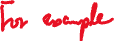 For example